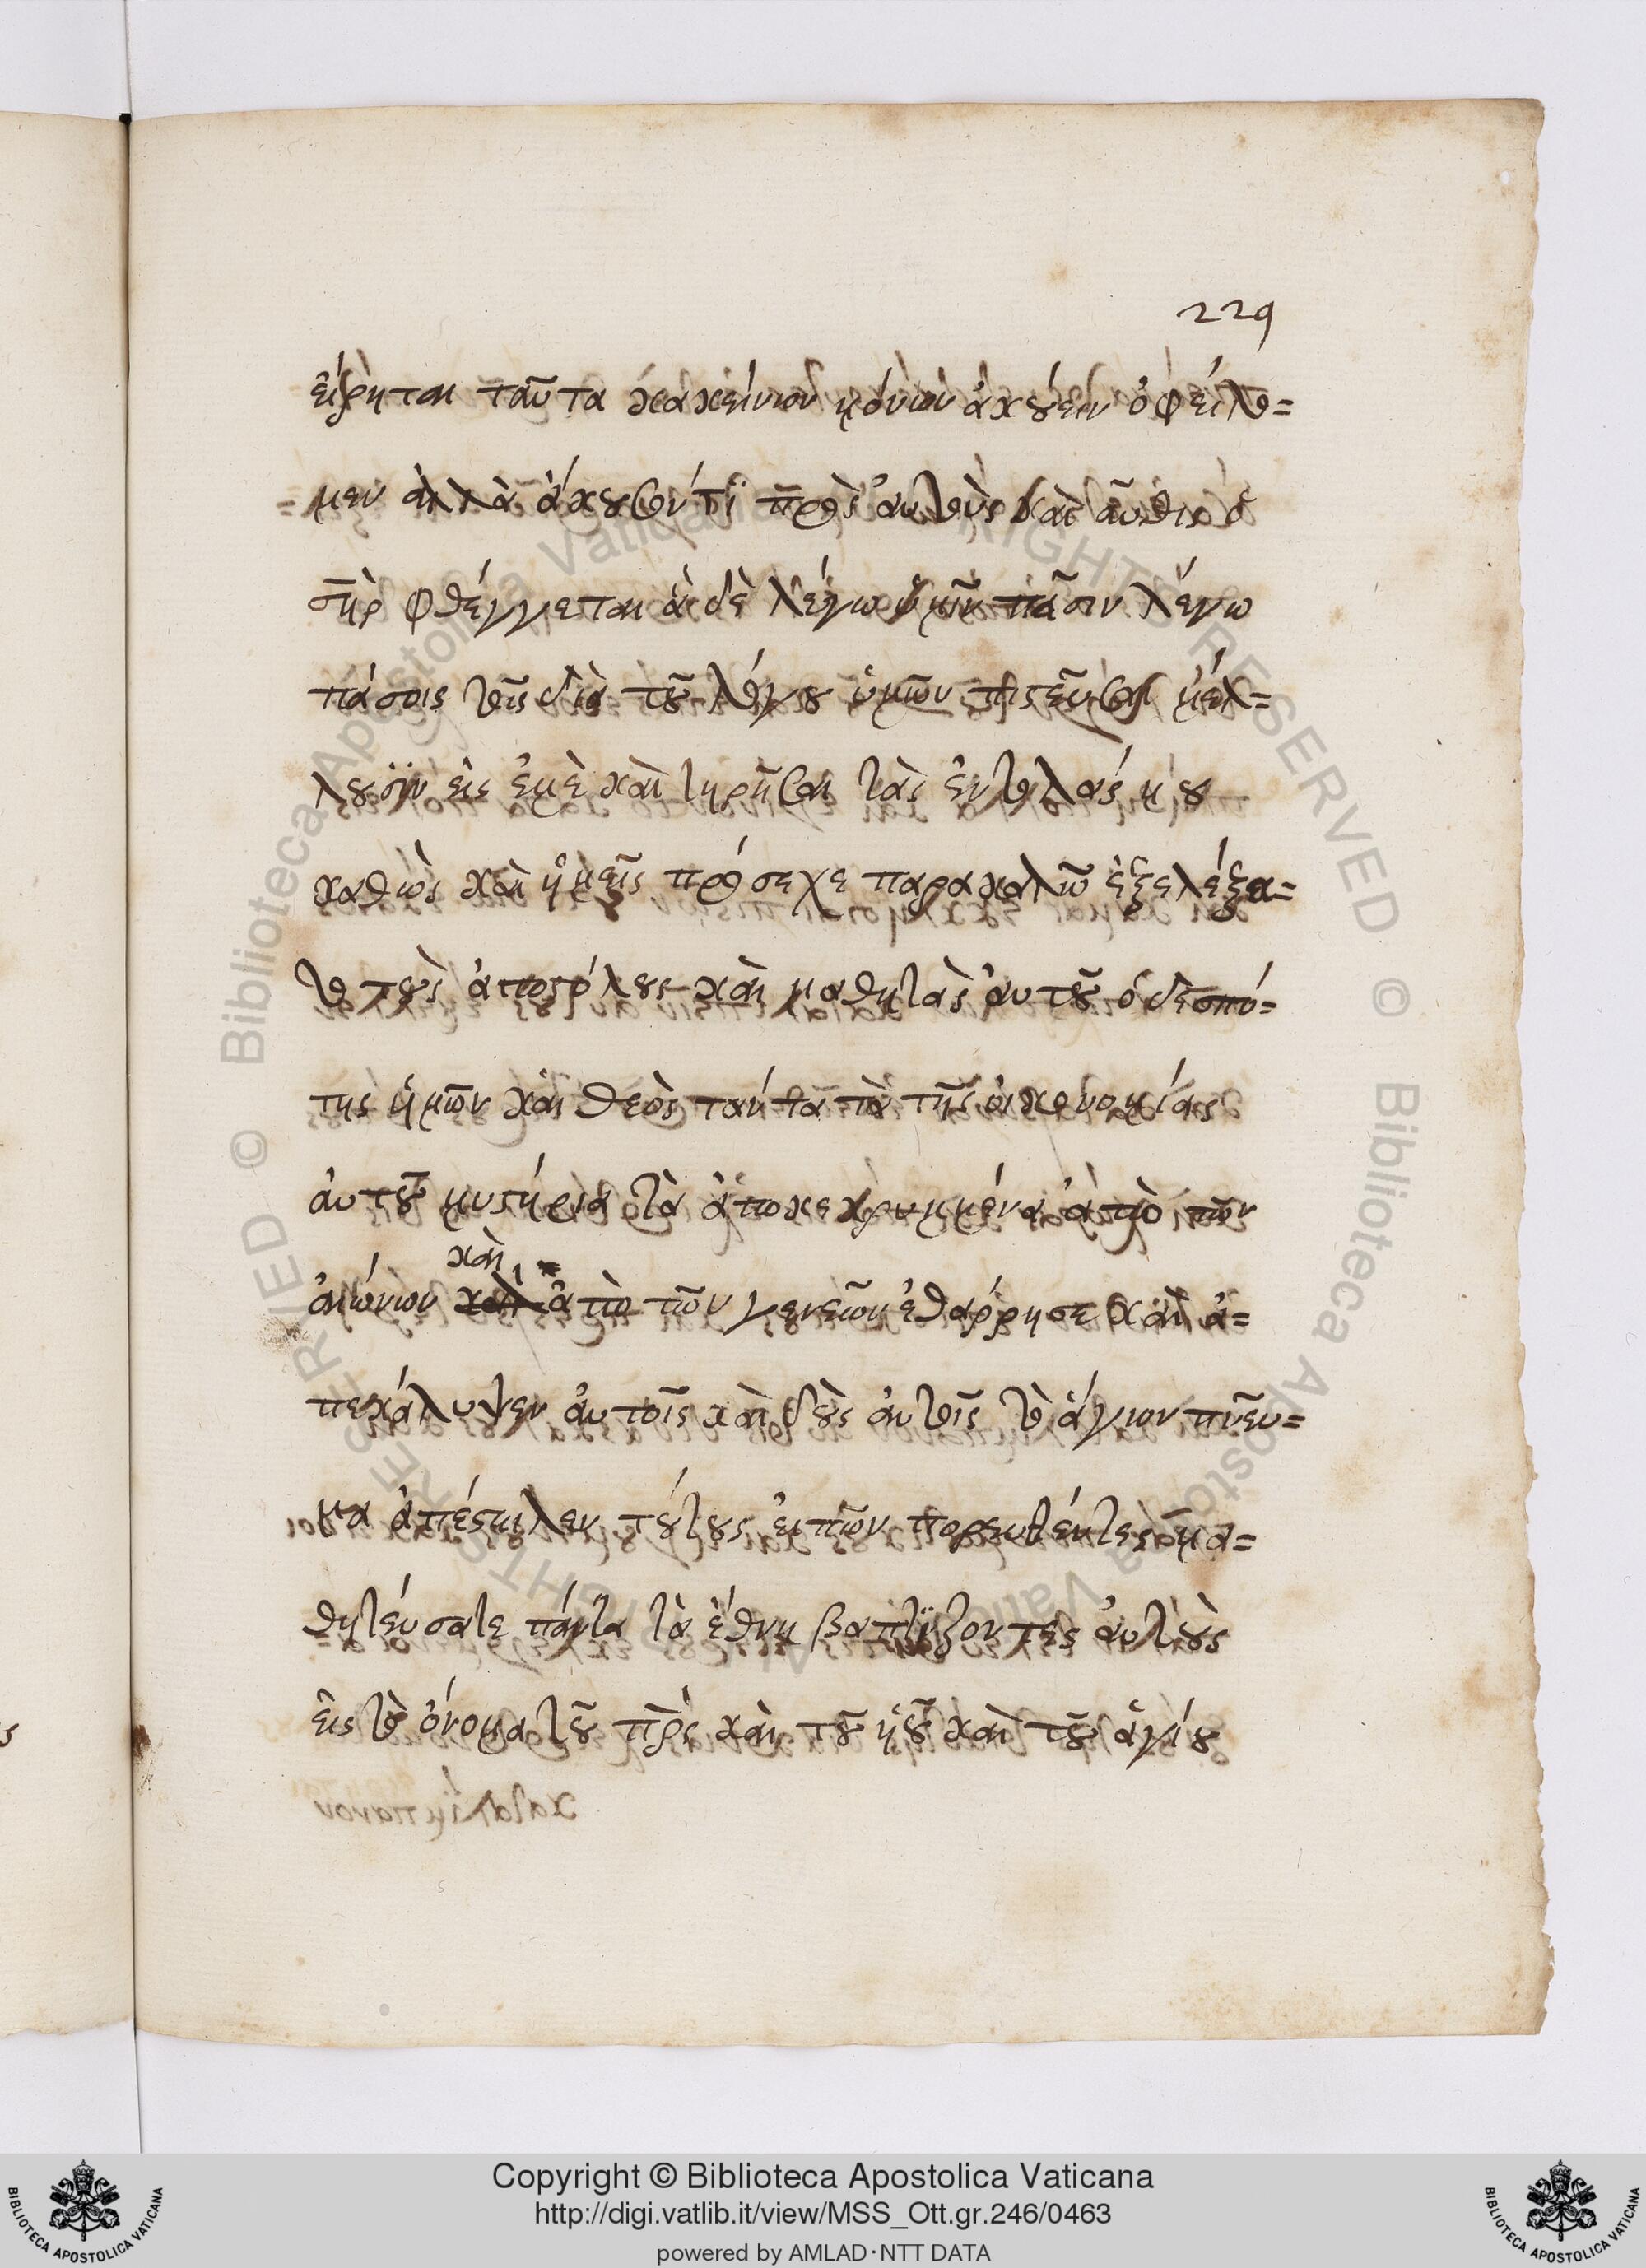 229
εἴρηται ταῦτα κακείνων μόνων ἀκούειν ὀφείλο=
μεν ἀλλὰ ἄκουσον τί πρὸς αυτοὺς καὶ αὖθις ὁ
σ̅ηρ φθέγγεται ἃ δὲ λέγω ὑμῖν πᾶσιν λέγω
πάσοις τοῖς διὰ τοῦ λόγου ὑμῶν πιστεῦσαι μέλ=
λουσϊν εἰς ἐμὲ καὶ τηρῆσαι τὰς ἐντολάς μου
καθὼς καὶ ἡμεῖς πρόσεχε παρακαλῶ ἐξελέξα=
το τοὺς ἀποστόλους καὶ μαθητὰς ἀυτοῦ ὁ δεσπό=
της ἡμῶν καὶ θεὸς ταύτα τὰ τῆς ὀικονομίας
ἀυτοῦ μυστήρια τὰ ἀποκεκρυμμένα ἀπὸ τῶν
καὶ
ἀιώνιων καὶ ἀπὸ τῶν γενεῶν ἐθάρρησε καὶ ἀ=
πεκάλυψεν ἀυτοῖς καὶ δοὺς ἀυτοῖς τὸ ἅγιον πνεῦ=
μα ἀπέστειλεν τούτους ἐιπῶν πορευθέντες μα=
θητεύσατε πάντα τὰ ἔθνη βαπτΐζοντες ἀυτοὺς
εἰς τὸ ὄνομα τοῦ π̅ρ̅ς καὶ τοῦ ὑ̅ῦ καὶ τοῦ ἁγίου
Copyright © Biblioteca Apostolica Vaticana
http://digi.vatlib.it/view/MSS_Ott.gr.246/0463
powered by AMLAD·NTT DATA
BIBLIOTECA APOSTOLICA VATICANA
BIBLIOTECA APOSTOLICA VATICANA